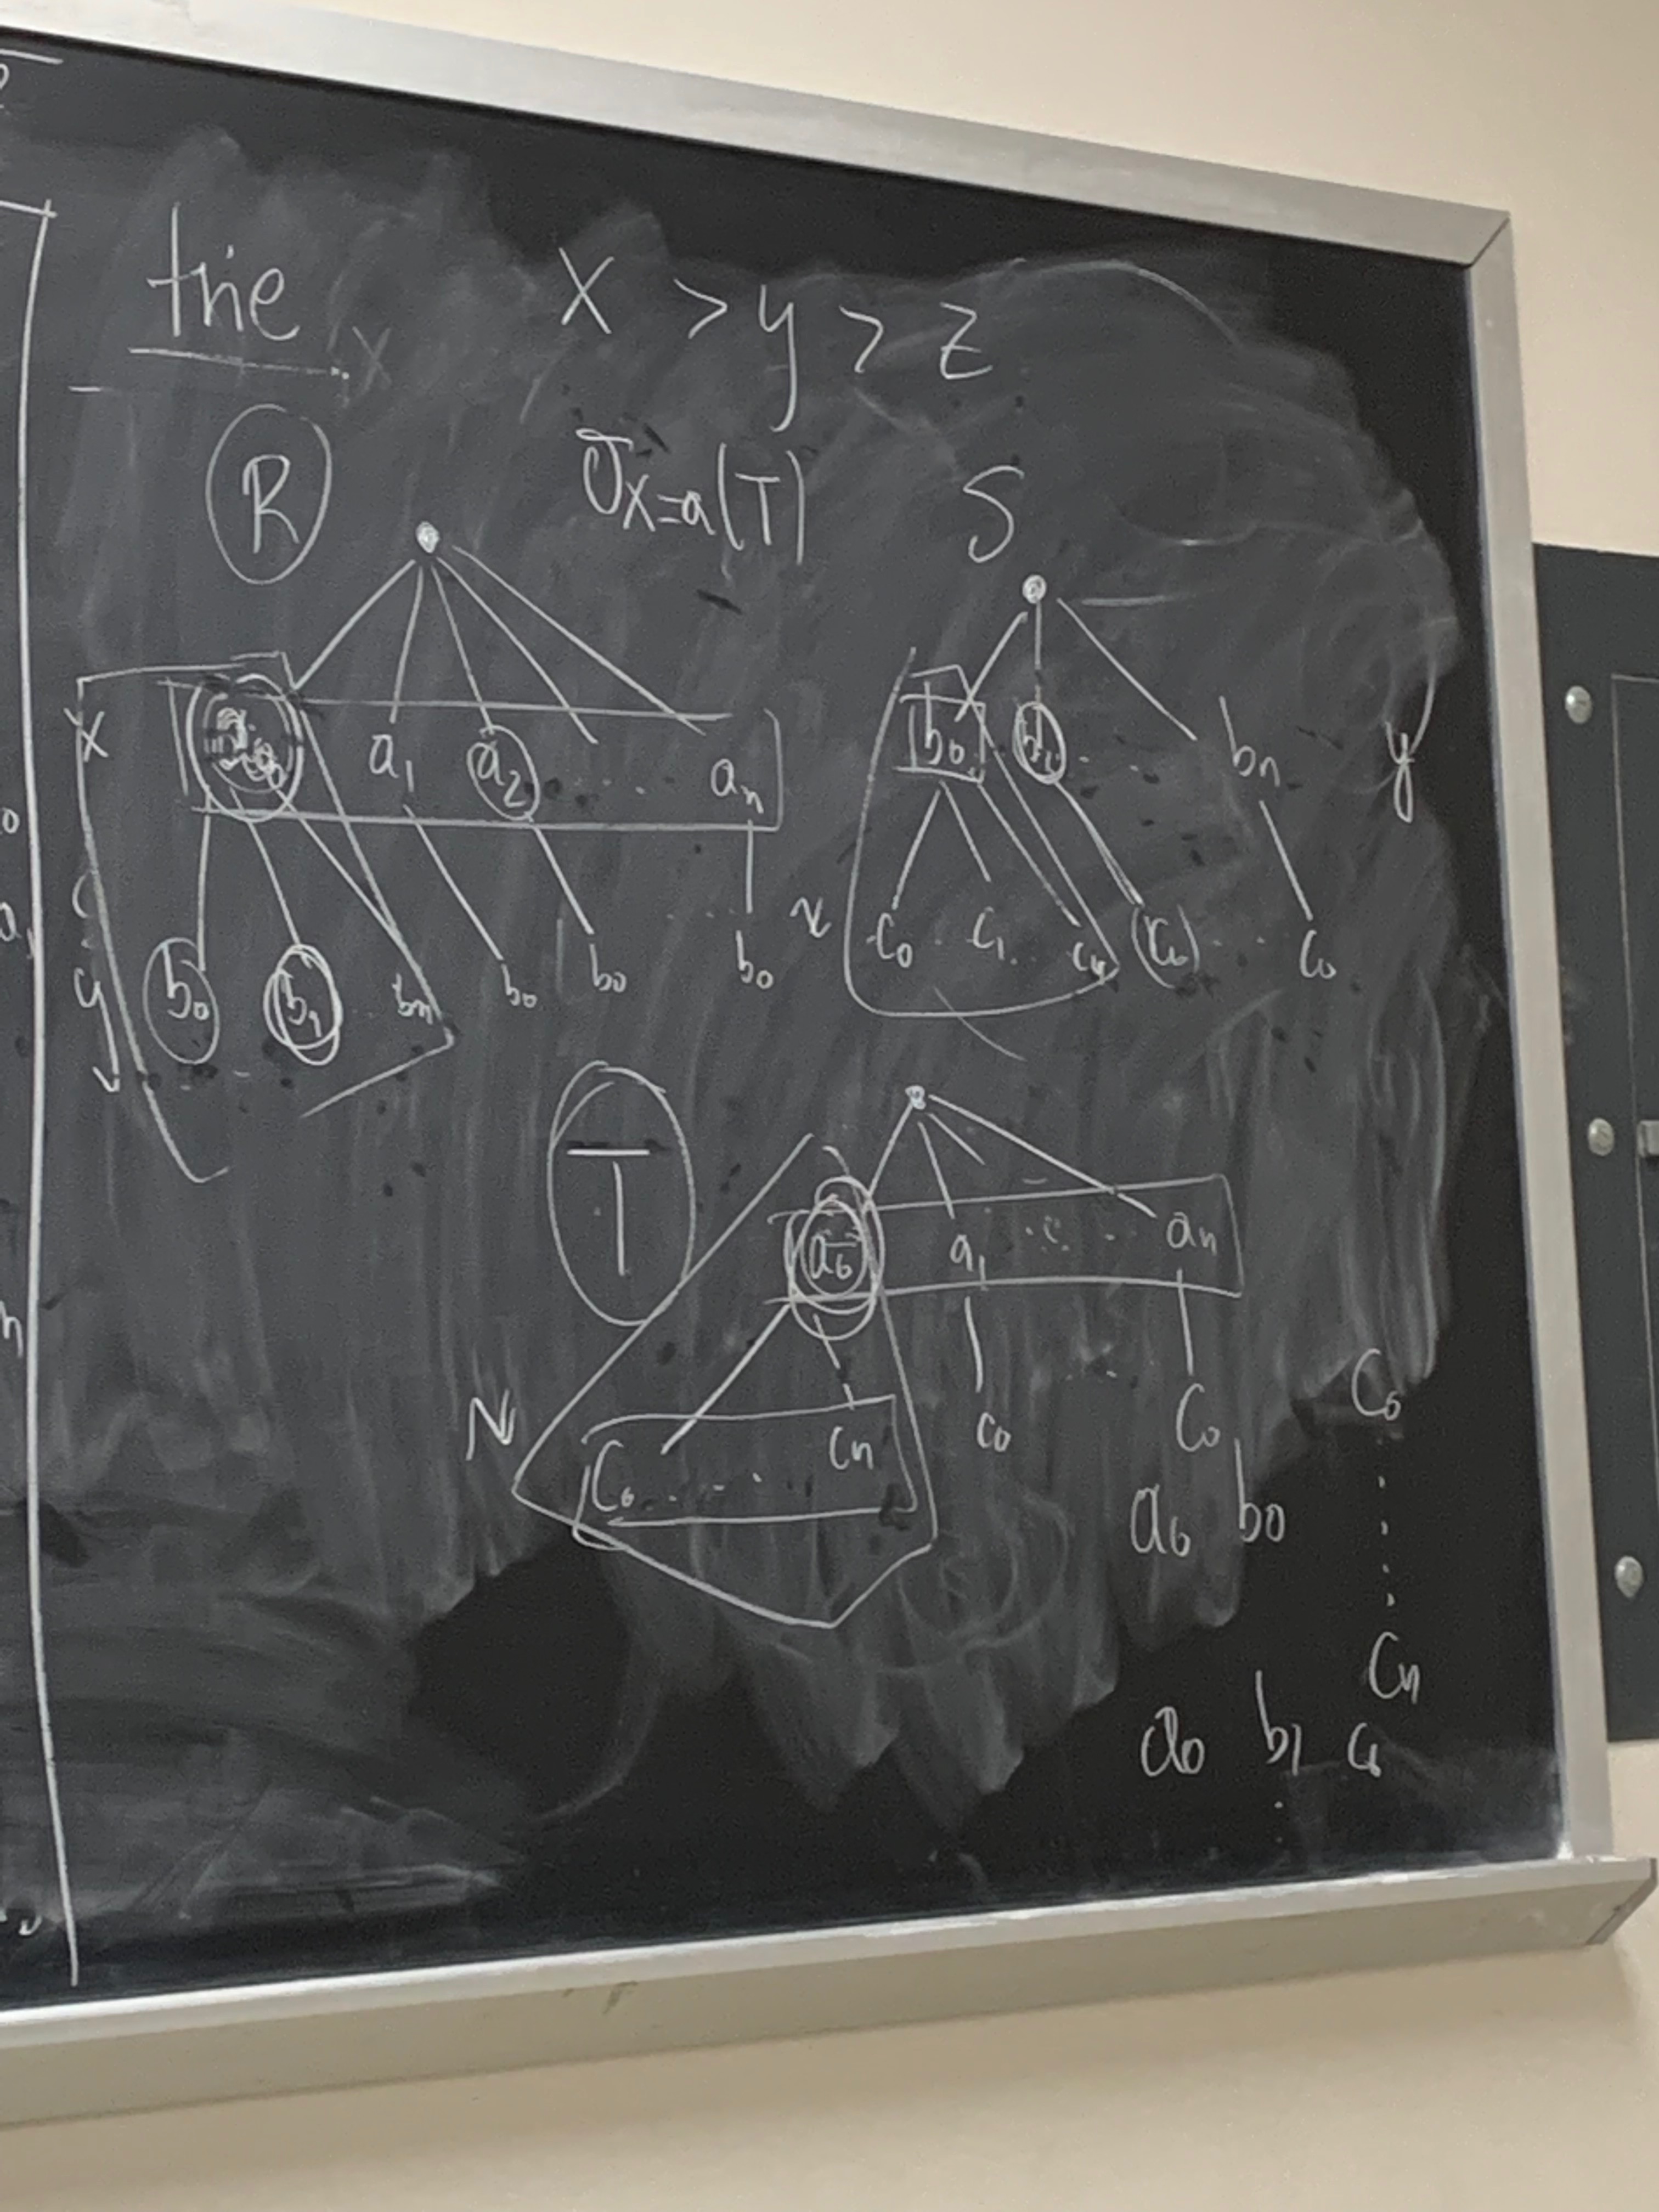 trie X > y > z
R σx=a(T) S
x a1 a2 ..... an
b0 ... bn y
y b0 b1 .. bn b0 b0 .... b0
c0 . c1 .. cn c0 .... c0
T
a0 a1 ..... an
N c0 ..... cn c0 c0
c0
a0 b0
cn
a0 b1 c0